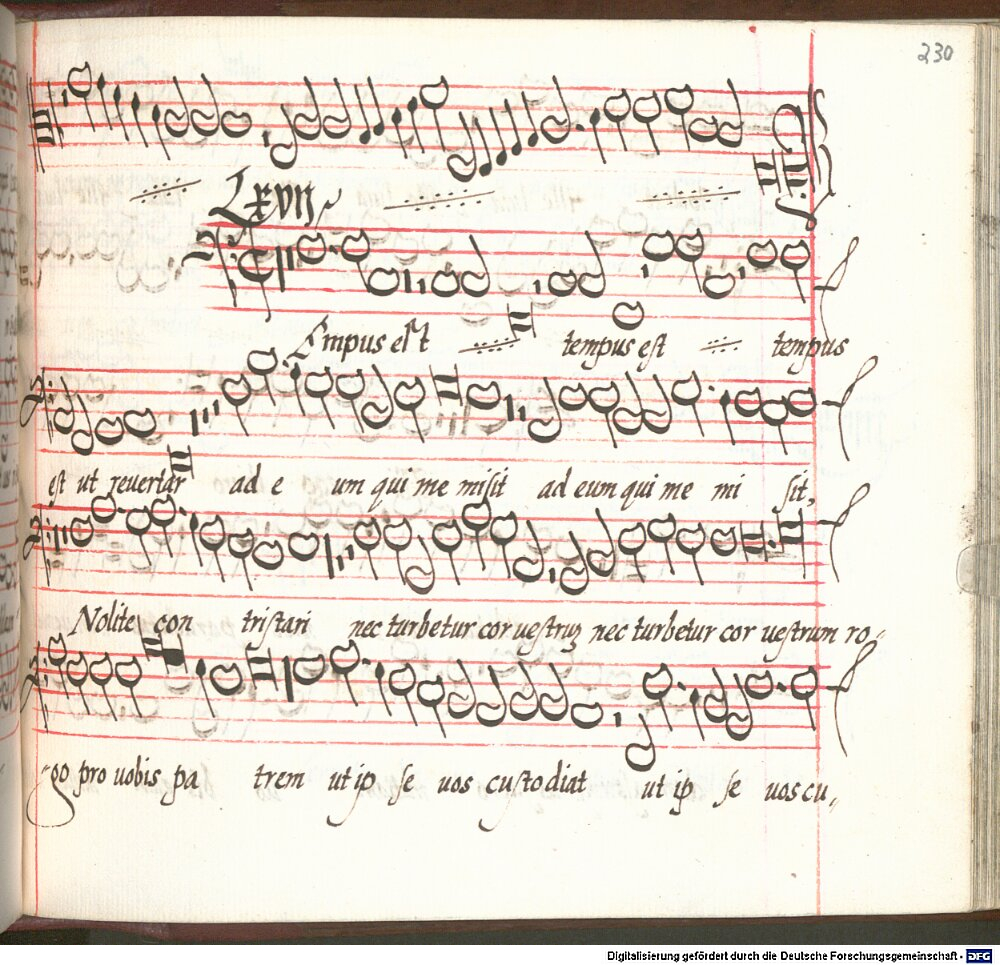 230
Lxvij
Empus est tempus est tempus
est ut revertar ad e um qui me misit ad eum qui me mi sit,
Nolite con tristari nec turbetur cor uestruz nec turbetur cor uestrum ro-
-go pro uobis pa trem ut ip se uos custodiat ut ip se uos cu-
Digitalisierung gefördert durch die Deutsche Forschungsgemeinschaft - DFG